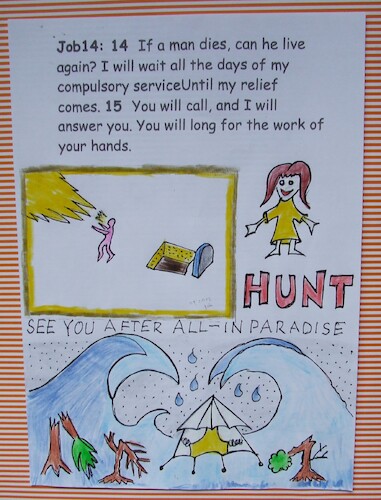 Job14: 14 If a man dies, can he live
again? I will wait all the days of my
compulsory serviceUntil my relief
comes. 15 You will call, and I will
answer you. You will long for the work of
your hands.
HUNT
SEE YOU AFTER ALL-IN PARADISE